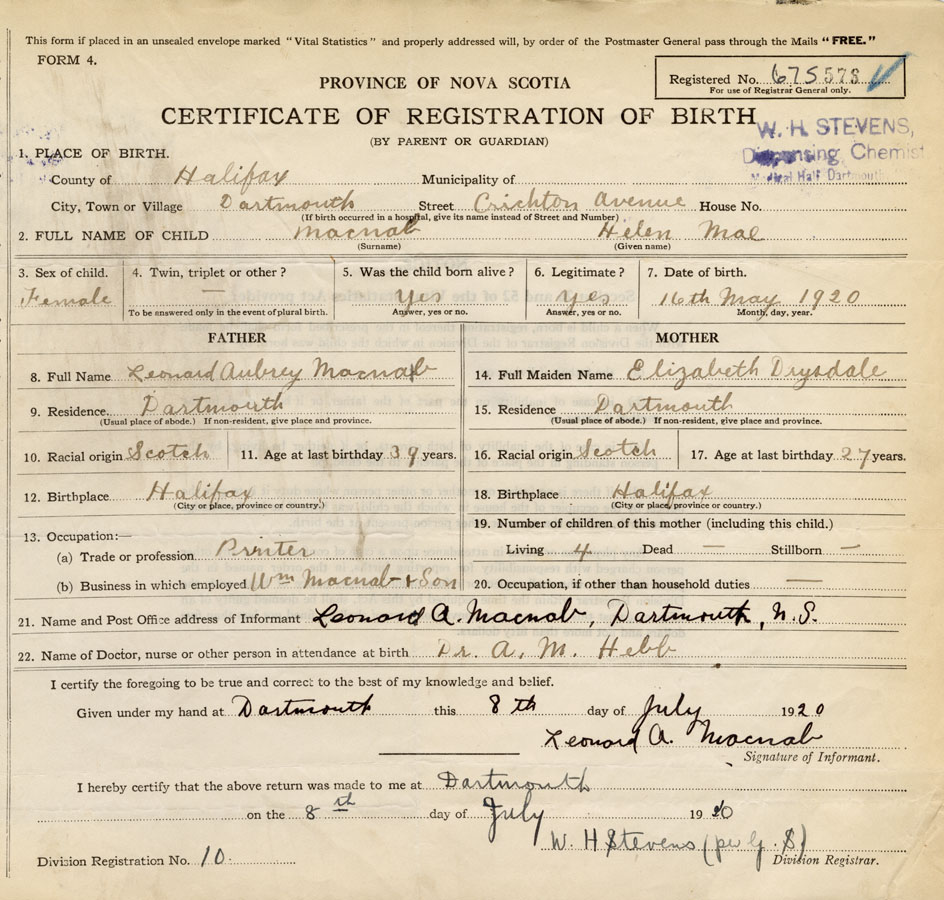 This form if placed in an unsealed envelope marked "Vital Statistics" and properly addressed will, by order of the Postmaster General pass through the Mails "FREE."
FORM 4.
Registered No. 675578
For use of Registrar General only.
PROVINCE OF NOVA SCOTIA
CERTIFICATE OF REGISTRATION OF BIRTH
(BY PARENT OR GUARDIAN)
W. H. STEVENS,
Dispensing Chemist
Medical Hall Dartmouth
1. PLACE OF BIRTH.
County of Halifax Municipality of
City, Town or Village Dartmouth Street Crichton Avenue House No.
(If birth occurred in a hospital, give its name instead of Street and Number)
2. FULL NAME OF CHILD Macnab Helen Mae
(Surname) (Given name)
3. Sex of child. 4. Twin, triplet or other? 5. Was the child born alive? 6. Legitimate? 7. Date of birth.
Female — Yes Yes 16th May 1920
To be answered only in the event of plural birth. Answer, yes or no. Answer, yes or no. Month, day, year.
FATHER MOTHER
8. Full Name Leonard Aubrey Macnab 14. Full Maiden Name Elizabeth Drysdale
9. Residence. Dartmouth 15. Residence Dartmouth
(Usual place of abode.) If non-resident, give place and province. (Usual place of abode.) If non-resident, give place and province.
10. Racial origin Scotch 11. Age at last birthday 39 years. 16. Racial origin Scotch 17. Age at last birthday 27 years.
12. Birthplace Halifax 18. Birthplace Halifax
(City or place, province or country.) (City or place, province or country.)
13. Occupation:— 19. Number of children of this mother (including this child.)
(a) Trade or profession Printer Living 4 Dead — Stillborn —
(b) Business in which employed Wm Macnab & Son 20. Occupation, if other than household duties —
21. Name and Post Office address of Informant Leonard A. Macnab, Dartmouth, N.S.
22. Name of Doctor, nurse or other person in attendance at birth Dr. A. M. Hebb
I certify the foregoing to be true and correct to the best of my knowledge and belief.
Given under my hand at Dartmouth this 8th day of July 1920
Leonard A. Macnab
Signature of Informant.
I hereby certify that the above return was made to me at Dartmouth
on the 8th day of July 1920
W. H Stevens (per G. S)
Division Registration No. 10. Division Registrar.